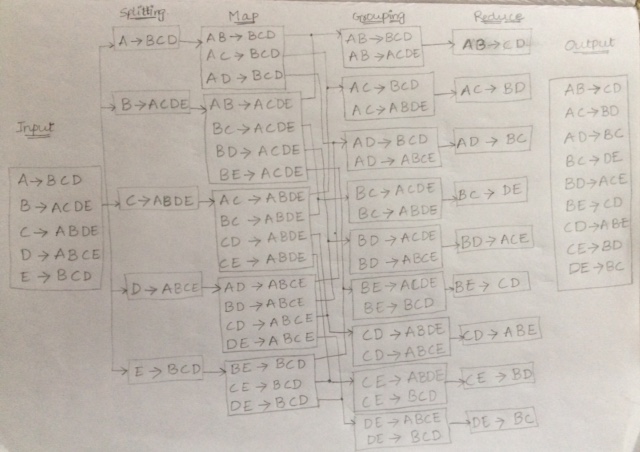 Splitting
Map
Grouping
Reduce
Output
Input
A→BCD
B→ACDE
C→ABDE
D→ABCE
E→BCD
A→BCD
B→ACDE
C→ABDE
D→ABCE
E→BCD
AB→BCD
AC→BCD
AD→BCD
AB→ACDE
BC→ACDE
BD→ACDE
BE→ACDE
AC→ABDE
BC→ABDE
CD→ABDE
CE→ABDE
AD→ABCE
BD→ABCE
CD→ABCE
DE→ABCE
BE→BCD
CE→BCD
DE→BCD
AB→BCD
AB→ACDE
AC→BCD
AC→ABDE
AD→BCD
AD→ABCE
BC→ACDE
BC→ABDE
BD→ACDE
BD→ABCE
BE→ACDE
BE→BCD
CD→ABDE
CD→ABCE
CE→ABDE
CE→BCD
DE→ABCE
DE→BCD
AB→CD
AC→BD
AD→BC
BC→DE
BD→ACE
BE→CD
CD→ABE
CE→BD
DE→BC
AB→CD
AC→BD
AD→BC
BC→DE
BD→ACE
BE→CD
CD→ABE
CE→BD
DE→BC